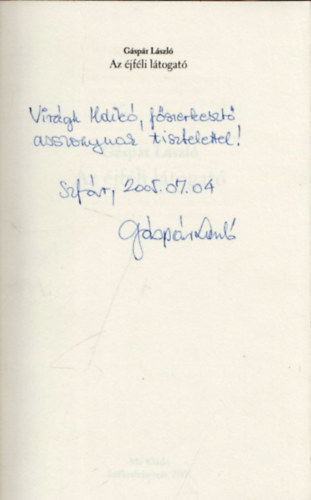 Gáspár László
Az éjféli látogató
Virágh Ildikó, főszerkesztő
asszonynak tisztelettel!
Szfár, 2005.07.04
Gáspár László